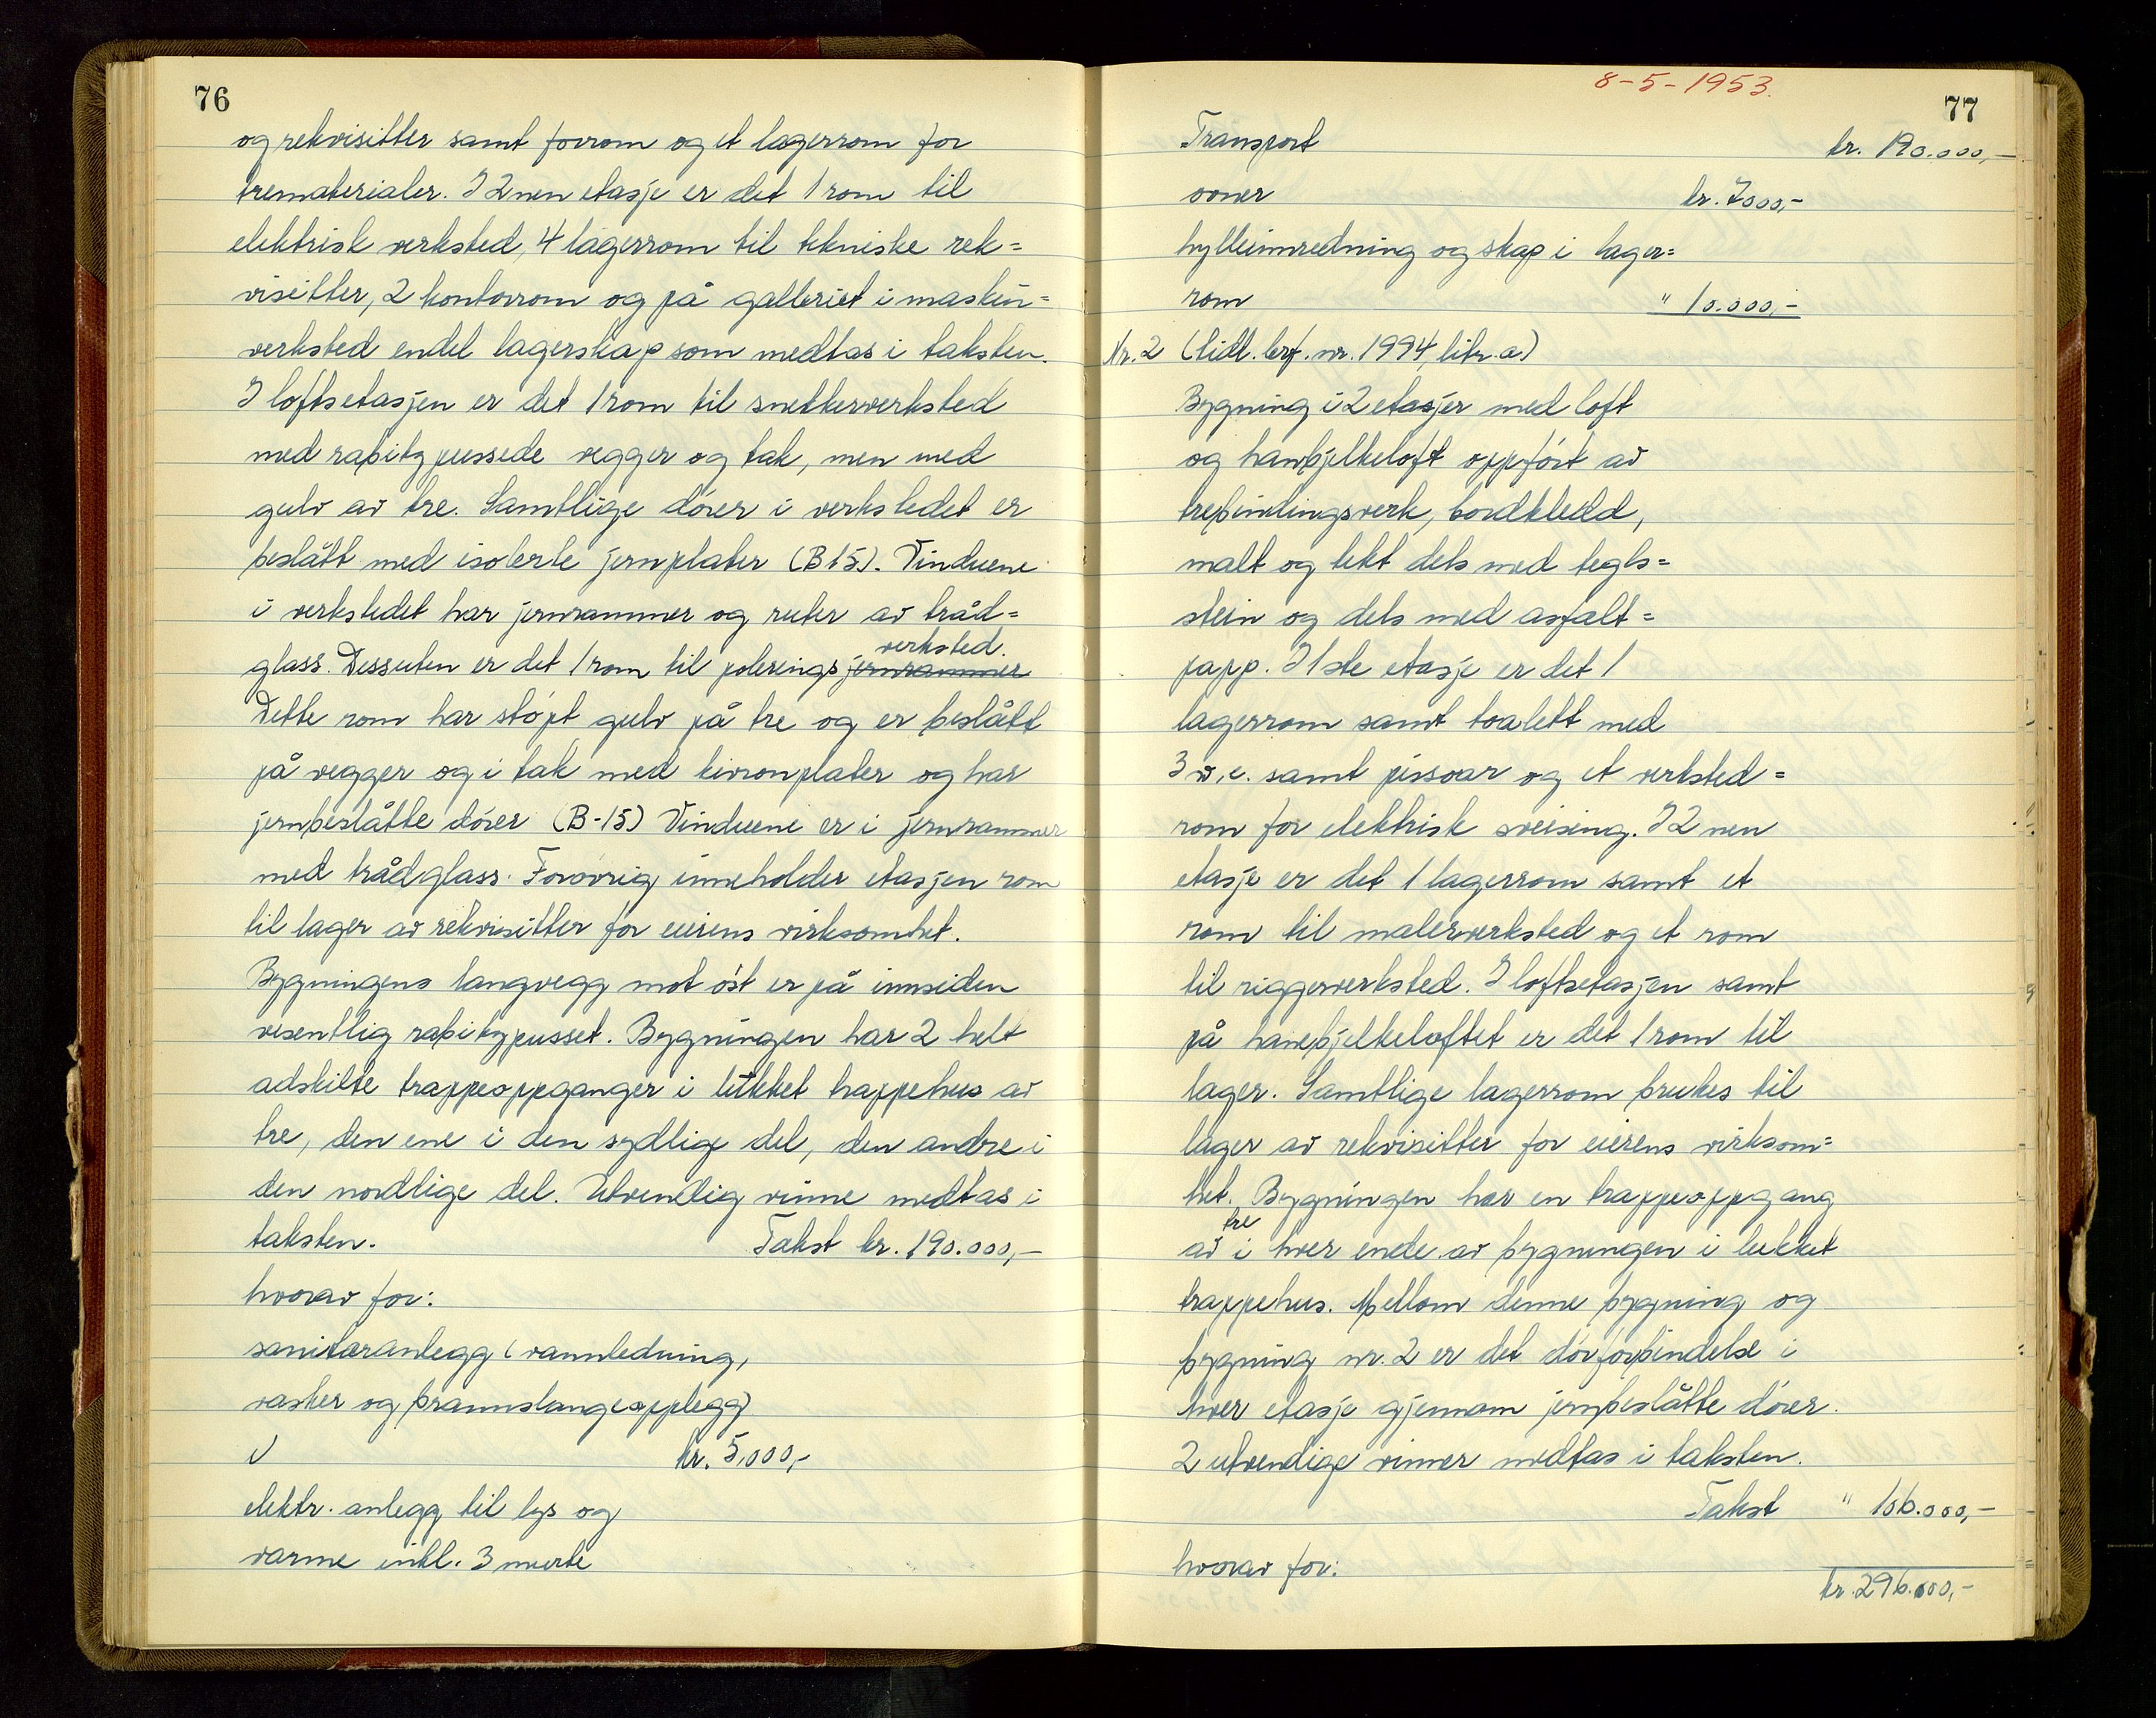 76
og rekvisitter samt forrom og et lagerrom for
trematerialer. I 2nen etasje er det 1 rom til
elektrisk verksted, 4 lagerrom til tekniske rek=
visitter, 2 kontorrom og på galleriet i maskin=
verksted endel lagerskap som medtas i taksten.
I loftsetasjen er det 1 rom til snekkerverksted
med rabitzpussede vegger og tak, men med
gulv av tre. Samtlige dörer i verkstedet er
beslått med isolerte jernplater (B15). Vinduene
i verkstedet har jernrammer og ruter av tråd=
verksted.
glass. Dessuten er det 1 rom til polerings jernrammer
Dette rom har stöpt gulv på tre og er beslått
på vegger og i tak med kivronplater og har
jernbeslåtte dörer (B-15) Vinduene er i jernrammer
med trådglass. Forövrig inneholder etasjen rom
til lager av rekvisitter for eierens virksomhet.
Bygningens langvegg mot öst er på innsiden
vesentlig rabitzpusset. Bygningen har 2 helt
adskilte trappeoppganger i lukket trappehus av
tre, den ene i den sydlige del, den andre i
den nordlige del. Utvendig vinne medtas i
taksten. Takst kr. 190.000,-
hvorav for:
sanitæranlegg (vannledning,
vasker og brannslangeopplegg)
kr. 5.000,-
elektr. anlegg til lys og
varme inkl. 3 murte
8-5-1953.
77
Transport kr. 190.000,-
ovner kr. 7000,-
hylleinnredning og skap i lager=
rom " 10.000,-
Nr. 2 (tidl. brf. nr. 1994, litr. a)
Bygning i 2 etasjer med loft
og hanebjelkeloft oppfört av
trebindingsverk, bordkledd,
malt og tekt dels med tegls=
stein og dels med asfalt=
papp. I 1ste etasje er det 1
lagerrom samt toalett med
3 w.c. samt pissoar og et verksted=
rom for elektrisk sveising. I 2nen
etasje er det 1 lagerrom samt et
rom til malerverksted og et rom
til riggerverksted. I loftsetasjen samt
på hanebjelkeloftet er det 1 rom til
lager. Samtlige lagerrom brukes til
lager av rekvisitter for eierens virksom=
het. Bygningen har en trappeoppgang
tre
av i hver ende av bygningen i lukket
trappehus. Mellom denne bygning og
bygning nr. 2 er det dörforbindelse i
hver etasje gjennom jernbeslåtte dörer.
2 utvendige vinner medtas i taksten.
Takst " 106.000,-
hvorav for:
kr. 296.000,-